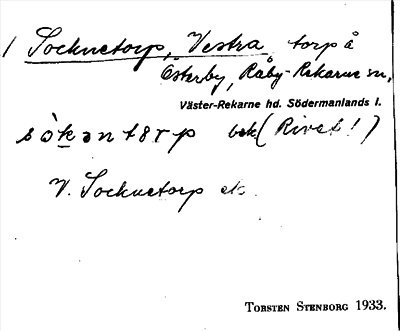 / Socknetorp, Vestra torp å
Österby, Råby-Rekarne sn,
Väster-Rekarne hd. Södermanlands l.
sò̀kəntɔrp bek (Rivet!)
V. Socknetorp ek
TORSTEN STENBORG 1933.